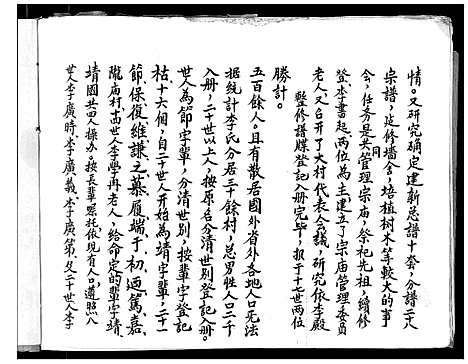 情。又研究确定建新总谱十套，分谱二十八
宗谱，延修墙舍，培植树木等較大的事
今，任务是共同管理宗庙，祭祀先祖，续修
登、李書起两位為主建立了宗庙管理委員
老人又召开了大村代表会議，研究依李殿
整修譜牒登記入冊完毕，报于十七世两位
勝計。
五百餘人。且有散居國外省外各地人口无法
据统計李氏分居三十餘村，总男性人口二千
入册，二十世以上六，按原名分清世别登記入册。
世人為節字輩，分清世别，按輩字登記
枯、十六個，自二十世人开始為靖字輩，二十一
節、保、復、維、謙、之、慕、履、端、于、初、迺、篤、嘉、
隴庙村，十五世人李學冉老人，給命定的輩字靖、
靖國共四人操办。按長輩嘱托依現有人口，遵照八
世人李廣時、李廣義、李廣第、久二十世人李